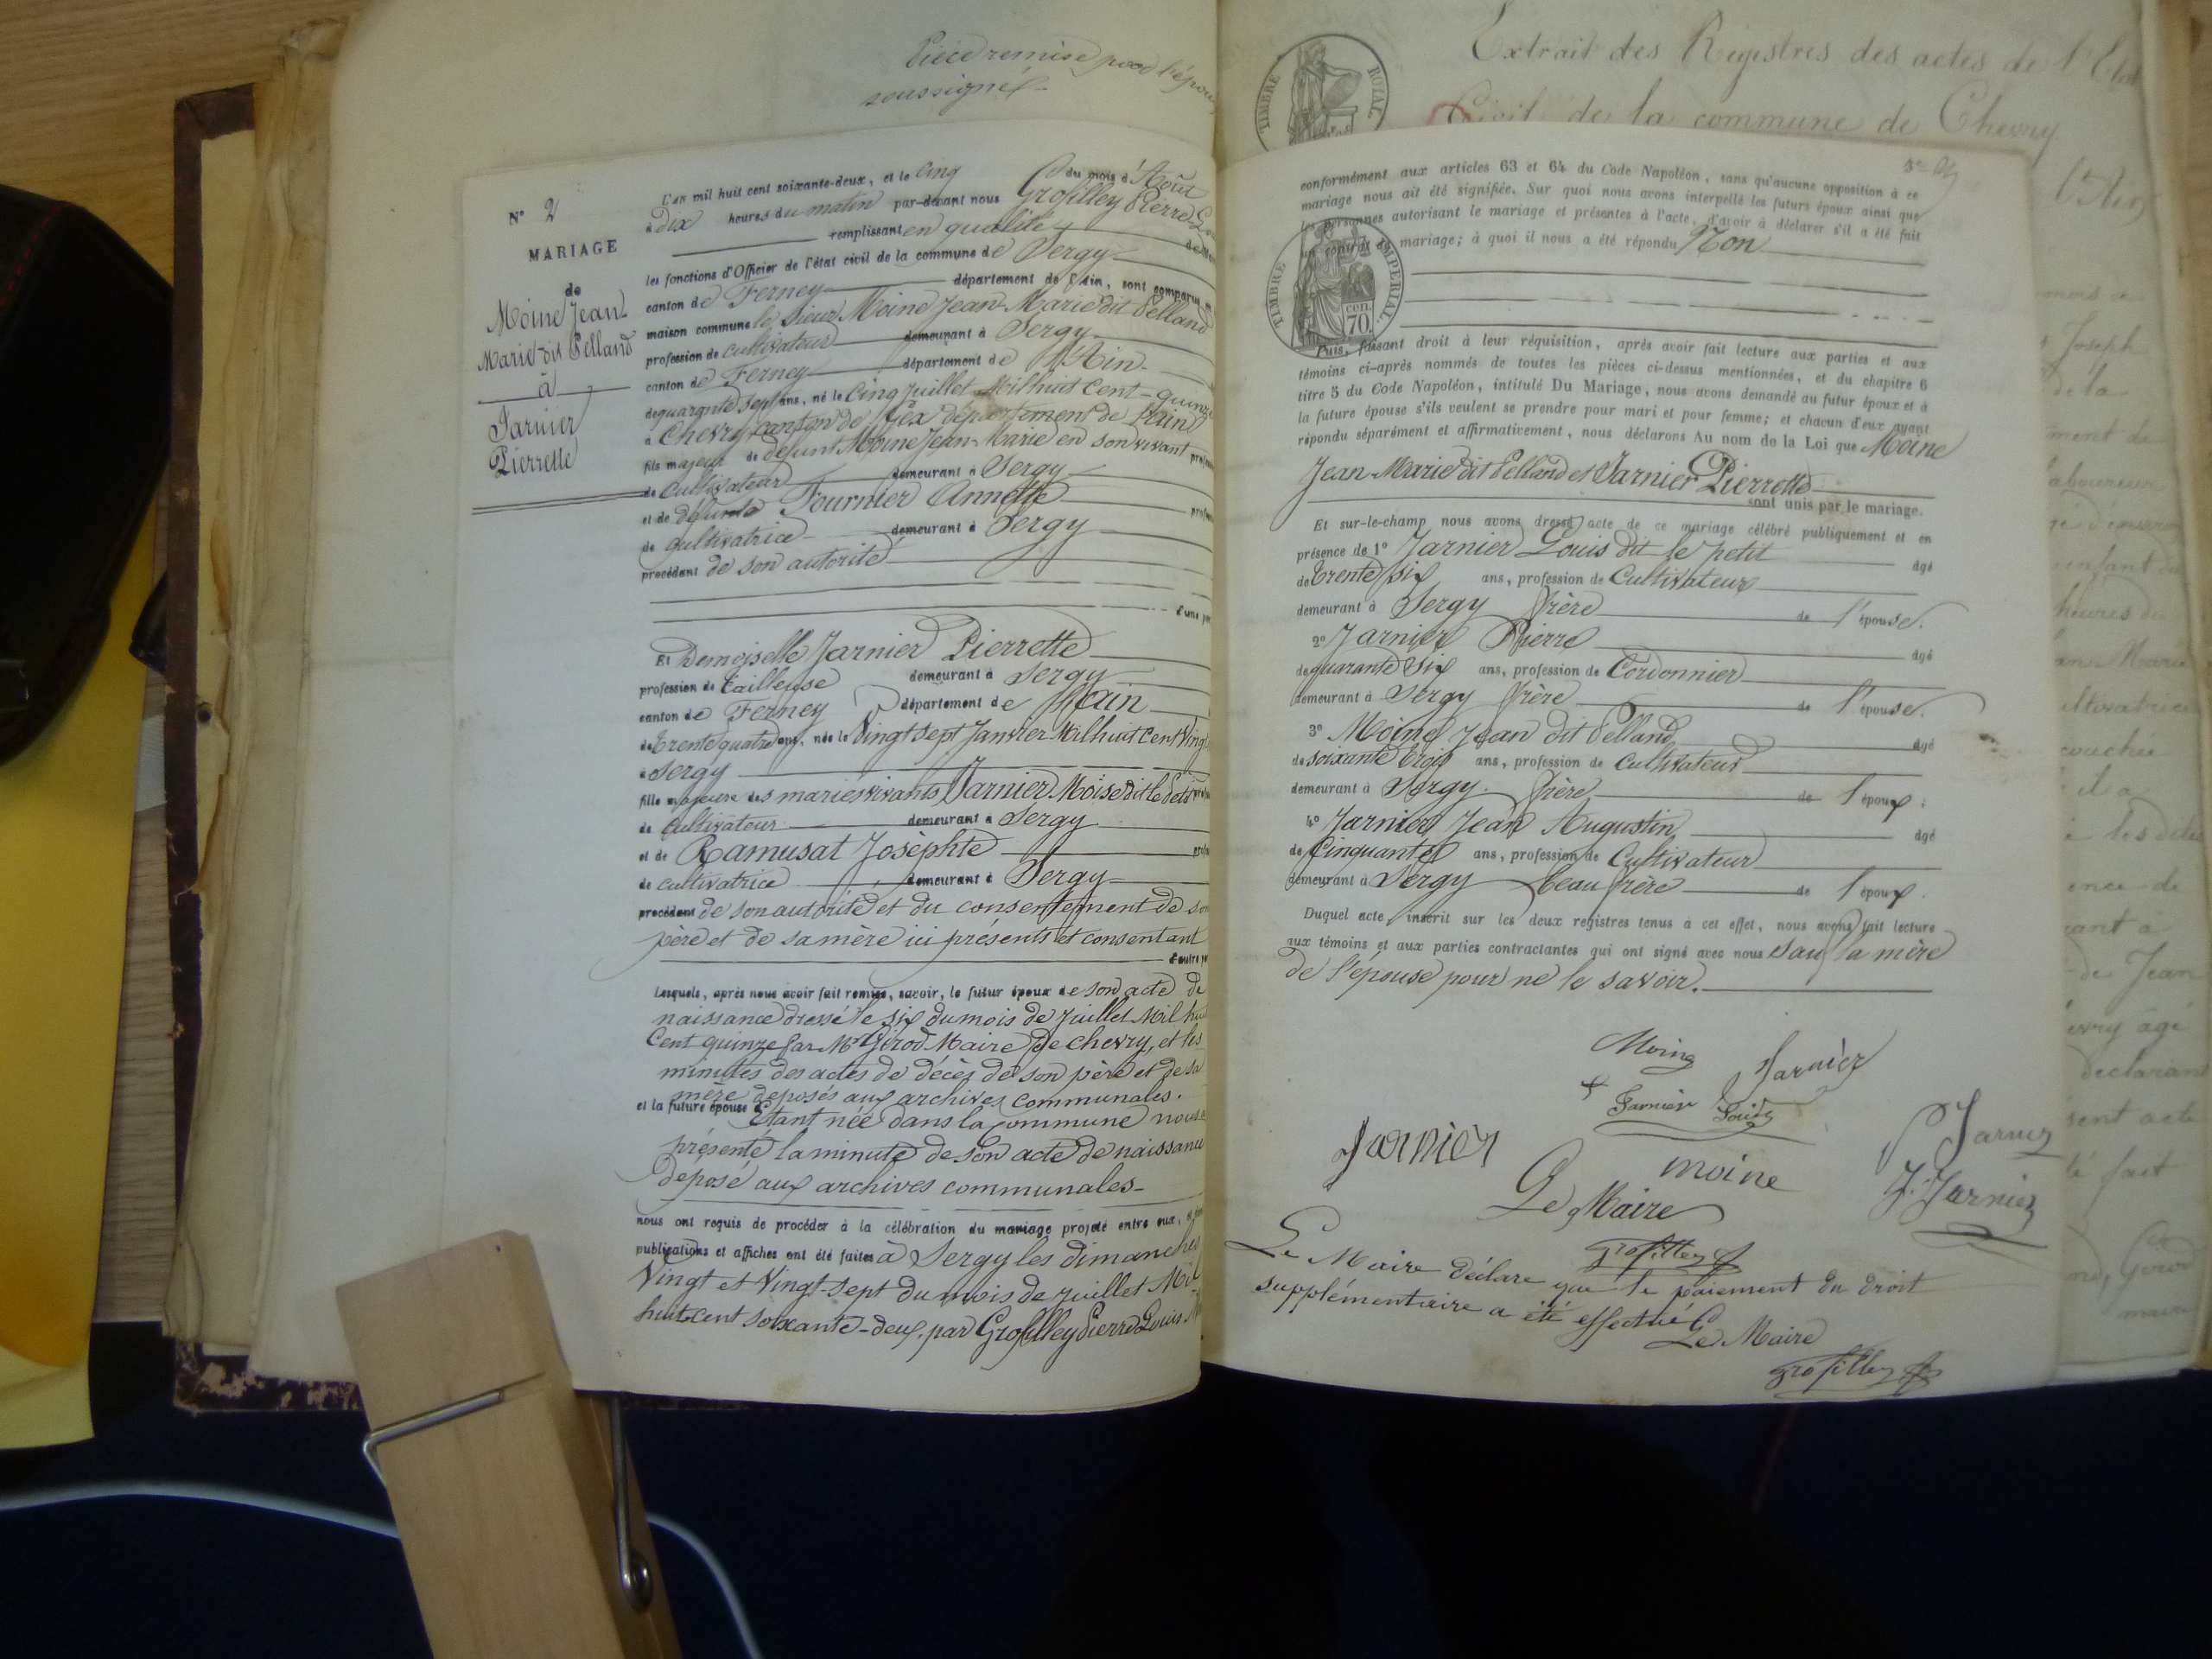 Pièce remise par l'épou
soussigné
N° 2
MARIAGE
de
Moine Jean
Marie dit Pelland
à
Jarnier
Pierrette
L'an mil huit cent soixante-deux, et le Cinq du mois d'Août
à Dix heures du matin par-devant nous Grosfilley Pierre L
remplissant en qualité de
les fonctions d'Officier de l'état civil de la commune de Sergy
canton de Ferney département de l'Ain, sont comparus
maison commune le Sieur Moine Jean-Marie dit Pelland
profession de Cultivateur demeurant à Sergy
canton de Ferney département de l'Ain
de quarante sept ans, né le Cinq juillet Mil huit Cent quinze
à Chevry canton de Gex département de l'ain
fils majeur de défunt Moine Jean-Marie en son vivant
de Cultivateur demeurant à Sergy
et de défunte Fournier Annette
de cultivatrice demeurant à Sergy
procédant de son autorité
d'une
Et Demoiselle Jarnier Pierrette
profession de tailleuse demeurant à Sergy
canton de Ferney département de l'ain
de trente quatre ans, née le Vingt Sept Janvier Mil huit Cent Vingt
à Sergy
fille majeure des mariés vivants Jarnier Moïse dit le Petit
de Cultivateur demeurant à Sergy
et de Ramusat Josephte
de cultivatrice demeurant à Sergy
procédant de son autorité et du consentement de son
père et de sa mère ici présents et consentant
d'autre
Lesquels, après nous avoir fait remise, savoir, le futur époux de son acte de
naissance dressé le six du mois de juillet Mil huit
Cent quinze par Mr Girod Maire de Chevry, et les
minutes des actes de décès de son père et de sa
mère deposés aux archives communales.
et la future épouse Etant née dans la commune nous
présenté la minute de son acte de naissance
deposé aux archives communales
nous ont requis de procéder à la célébration du mariage projeté entre eux,
publications et affiches ont été faites à Sergy les dimanches
Vingt et Vingt-sept du mois de juillet Mil
huit cent soixante-deux par Grosfilley Pierre Louis
Extrait des Registres des actes de l'Etat
Civil de la commune de Chevry
TIMBRE ROYAL
conformément aux articles 63 et 64 du Code Napoléon, sans qu'aucune opposition à ce
mariage nous ait été signifiée. Sur quoi nous avons interpellé les futurs époux ainsi que
les personnes autorisant le mariage et présentes à l'acte, d'avoir à déclarer s'il a été fait
un contrat de mariage; à quoi il nous a été répondu Non
TIMBRE IMPERIAL
cen.
70.
Puis, faisant droit à leur réquisition, après avoir fait lecture aux parties et aux
témoins ci-après nommés de toutes les pièces ci-dessus mentionnées, et du chapitre 6
titre 5 du Code Napoléon, intitulé Du Mariage, nous avons demandé au futur époux et à
la future épouse s'ils veulent se prendre pour mari et pour femme; et chacun d'eux ayant
répondu séparément et affirmativement, nous déclarons Au nom de la Loi que Moine
Jean-Marie dit Pelland et Jarnier Pierrette
sont unis par le mariage.
Et sur-le-champ nous avons dressé acte de ce mariage célébré publiquement et en
présence de 1° Jarnier Louis dit le petit âgé
de trente six ans, profession de Cultivateur
demeurant à Sergy frère de l'épouse.
2° Jarnier Pierre âgé
de quarante six ans, profession de Cordonnier
demeurant à Sergy frère de l'épouse.
3° Moine Jean dit Pelland âgé
de soixante trois ans, profession de Cultivateur
demeurant à Sergy. frère de l'époux.
4° Jarnier Jean Augustin, âgé
de Cinquante ans, profession de Cultivateur
demeurant à Sergy beau frère de l'époux.
Duquel acte, inscrit sur les deux registres tenus à cet effet, nous avons fait lecture
aux témoins et aux parties contractantes qui ont signé avec nous sauf la mère
de l'épouse pour ne le savoir.
Moine Jarnier
Jarnier Louis
Jarnier moine Jarnier
J. Jarnier
Le Maire
Grosfilley
Le Maire déclare que le paiement du droit
supplémentaire a été effectué
Le Maire
Grosfilley